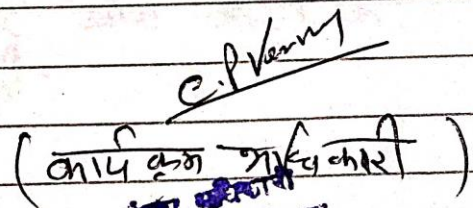 C.P Verma
( कार्य क्रम अधिकारी )